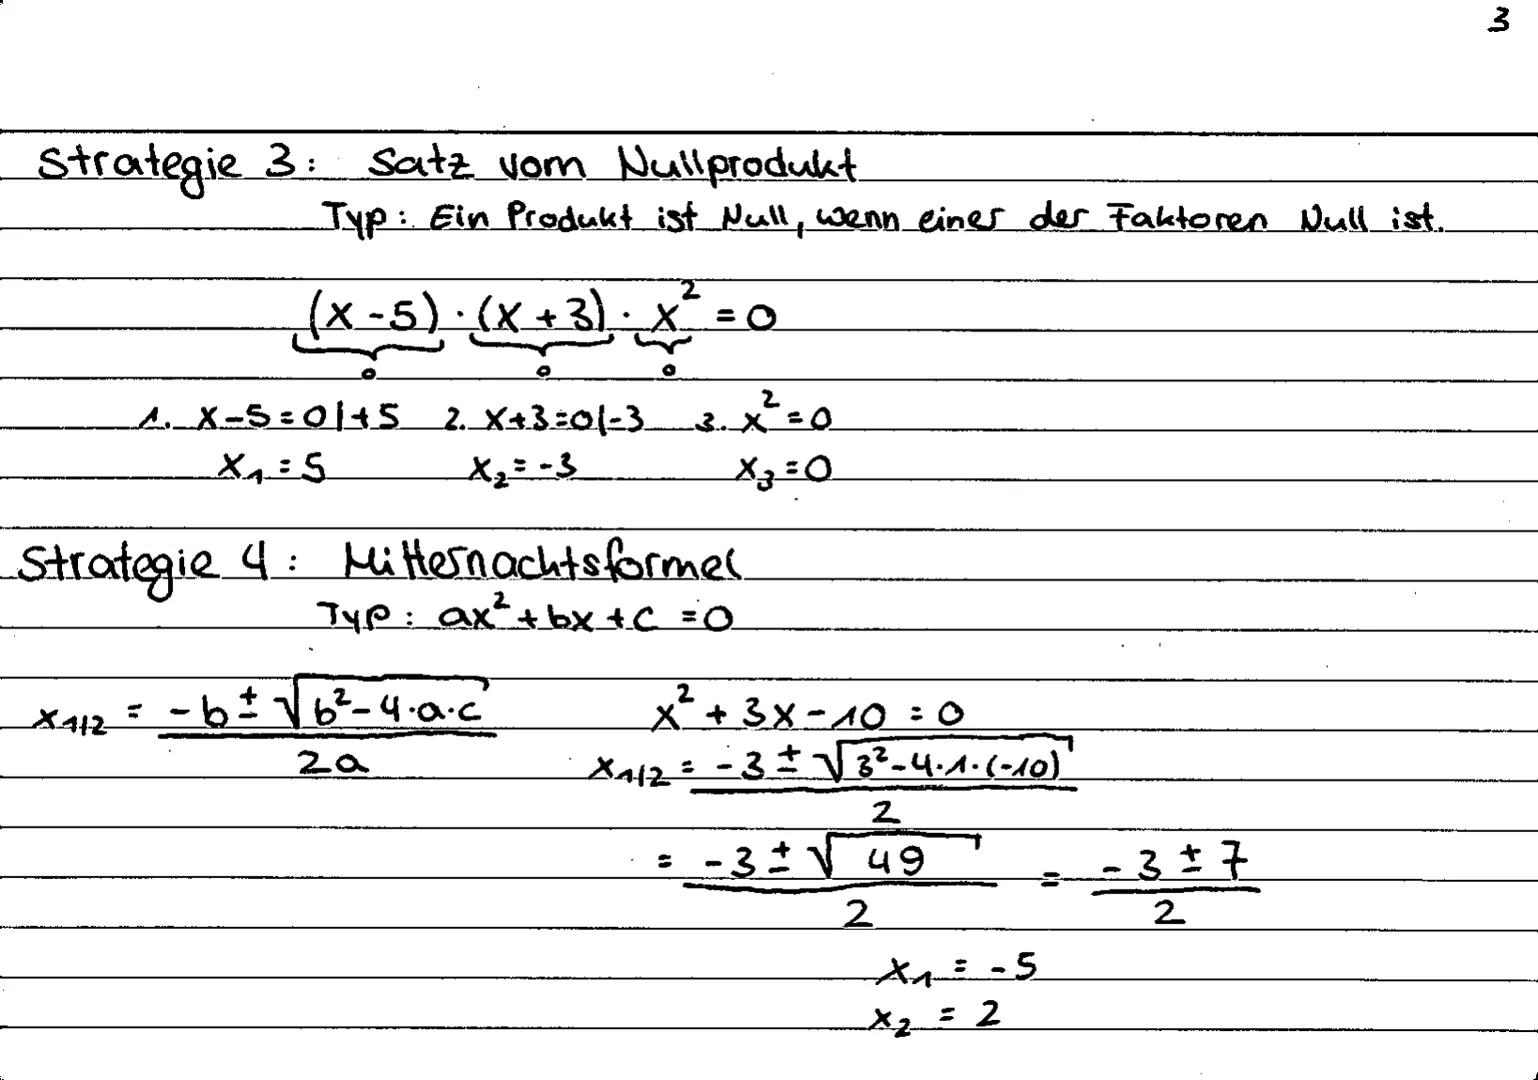 3
Strategie 3: Satz vom Nullprodukt
Typ: Ein Produkt ist Null, wenn einer der Faktoren Null ist.
(x-5) · (x+3) · x² = 0
0 0 0
1. x-5=0|+5 2. x+3=0|-3 3. x²=0
x₁=5 x₂=-3 x₃=0
Strategie 4: Mitternachtsformel
Typ: ax²+bx+c=0
x₁/₂ = (-b ± √(b²-4·a·c)) / 2a
x²+3x-10=0
x₁/₂ = (-3 ± √(3²-4·1·(-10))) / 2
= (-3 ± √49) / 2 = (-3 ± 7) / 2
x₁ = -5
x₂ = 2